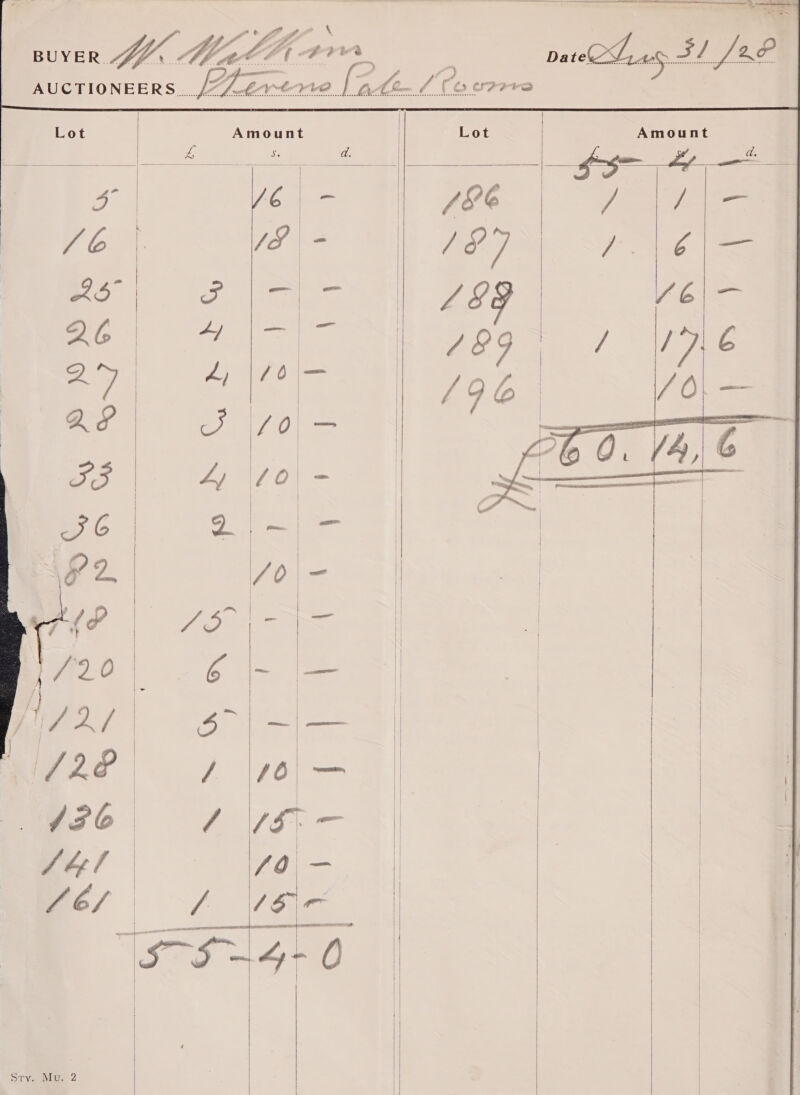 BUYER W. Wilkins Date Aug 31/28
AUCTIONEERS Stevens Sale Rooms
Lot Amount
£ s. d.
5 16 -
16 18 -
25 3 - -
26 4 - -
27 4 10 -
28 3 10 -
33 4 10 -
36 2 - -
82 10 -
118 15 - -
120 6 - -
121 5 - -
128 1 10 -
136 1 15 -
141 10 -
161 1 15 -
55-4-0
Lot Amount
£ s. d.
55 4 -
186 1 1 -
187 1 6 -
188 16 -
189 1 17.6
196 10 -
£60.14,6
STY. MU. 2